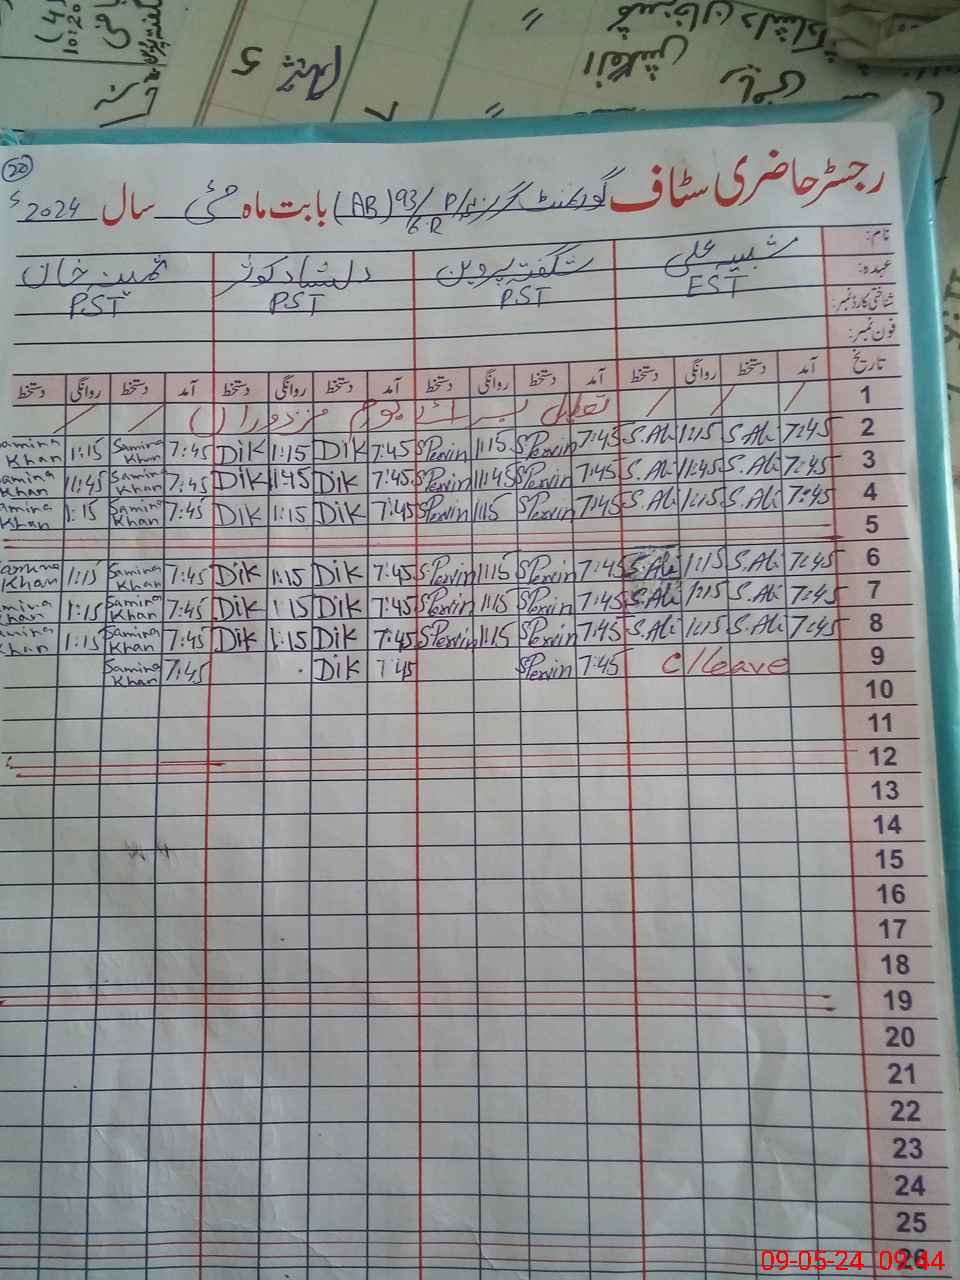 20
رجسٹر حاضری سٹاف گورنمنٹ گرلز P/ 93/6.R (AB) بابت ماہ مئی سال 2024ء
نام: شبیر علی شگفتہ پروین دلشاد کوثر ثمینہ خان
عہدہ: EST PST PST PST
شناختی کارڈ نمبر:
فون نمبر:
تاریخ آمد دستخط روانگی دستخط آمد دستخط روانگی دستخط آمد دستخط روانگی دستخط آمد دستخط روانگی دستخط
1 تعطیل یوم مزدوراں
2 7:45 S.Ali 1:15 S.Ali 7:45 SPervin 1:15 SPervin 7:45 Dik 1:15 Dik 7:45 Samina Khan 1:15 Samina Khan
3 7:45 S.Ali 11:45 S.Ali 7:45 SPervin 11:45 SPervin 7:45 Dik 11:45 Dik 7:45 Samina Khan 11:45 Samina Khan
4 7:45 S.Ali 1:15 S.Ali 7:45 SPervin 1:15 SPervin 7:45 Dik 1:15 Dik 7:45 Samina Khan 1:15 Samina Khan
5
6 7:45 S.Ali 1:15 S.Ali 7:45 SPervin 1:15 SPervin 7:45 Dik 1:15 Dik 7:45 Samina Khan 1:15 Samina Khan
7 7:45 S.Ali 1:15 S.Ali 7:45 SPervin 1:15 SPervin 7:45 Dik 1:15 Dik 7:45 Samina Khan 1:15 Samina Khan
8 7:45 S.Ali 1:15 S.Ali 7:45 SPervin 1:15 SPervin 7:45 Dik 1:15 Dik 7:45 Samina Khan 1:15 Samina Khan
9 C/Leave 7:45 SPervin 7:45 Dik 7:45 Samina Khan
10
11
12
13
14
15
16
17
18
19
20
21
22
23
24
25
26
09-05-24 09:44